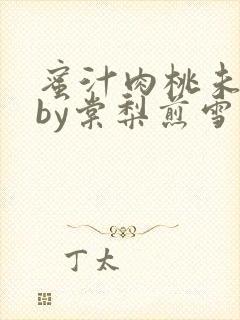 蜜汁肉桃未
by棠梨煎雪
丁太